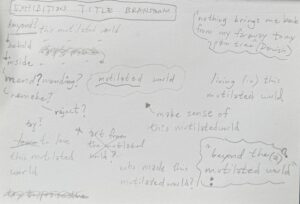 EXHIBITION TITLE BRAINSTORM
beyond? this mutilated world
behold
inside
mend? mending?
remake?
reject?
try?
to love
this mutilated
world
art from
the mutilated
world?
mutilated world
make sense of
this mutilated world
who made this
mutilated world?
nothing brings me back
from my
living (in) this
mutilated world
"beyond the(a)
mutilated world"